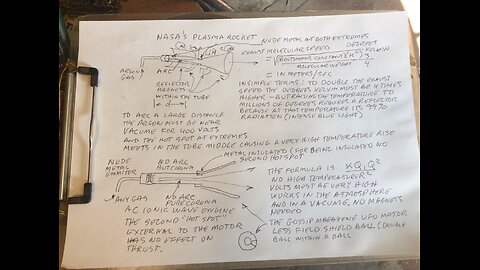 NASA'S PLASMA ROCKET
NUDE METAL AT BOTH EXTREMES
EXAUST MOLECULAR SPEED
DEGREES
KELVIN
(BOLTSMANS CONSTANT)(K°)
MOLECULAR WEIGHT
4
= IN METERS/SEC
ARGON
GAS
ARC
DEFLECTOR
MAGNETS
WITHIN THE TUBE
d
IN SIMPLE TERMS: TO DOUBLE THE EXAUST
SPEED THE DEGREES KELVIN MUST BE 4 TIMES
HIGHER - BUT RAISING THE TEMPERATURE TO
MILLIONS OF DEGREES REQUIRES A REFLECTOR
BECAUSE AT THAT TEMPERATURE ITS 99%
RADIATION (INTENSE BLUE LIGHT)
TO ARC A LARGE DISTANCE
THE ARGON MUST BE NEAR
VACUMU FOR 400 VOLTS
AND THE HOT SPOT AT EXTREMES
MEETS IN THE TUBE MIDDLE CAUSING A VERY HIGH TEMPERATURE RISE
NUDE
METAL
EMMITER
NO ARC
BUT CORONA
METAL INSULATED (FOR BEING INSULATED NO
SECOND HOTSPOT)
ANY GAS
NO ARC
PURE CORONA
AC IONIC WAVE ENGINE
THE SECOND "HOT SPOT"
EXTERNAL TO THE MOTOR
HAS NO EFFECT ON
THRUST.
THE FORMULA IS KQ₁Q²
R²
NO HIGH TEMPERATURE
VOLTS MUST BE VERY HIGH
WORKS IN THE ATMOSPHERE
AND IN A VACUME, NO MAGNETS
NEEDED
THE GOSSIP MAGAZINE UFO MOTOR
LESS FIELD SHIELD BALL (DOUBLE
BALL WITHIN A BALL